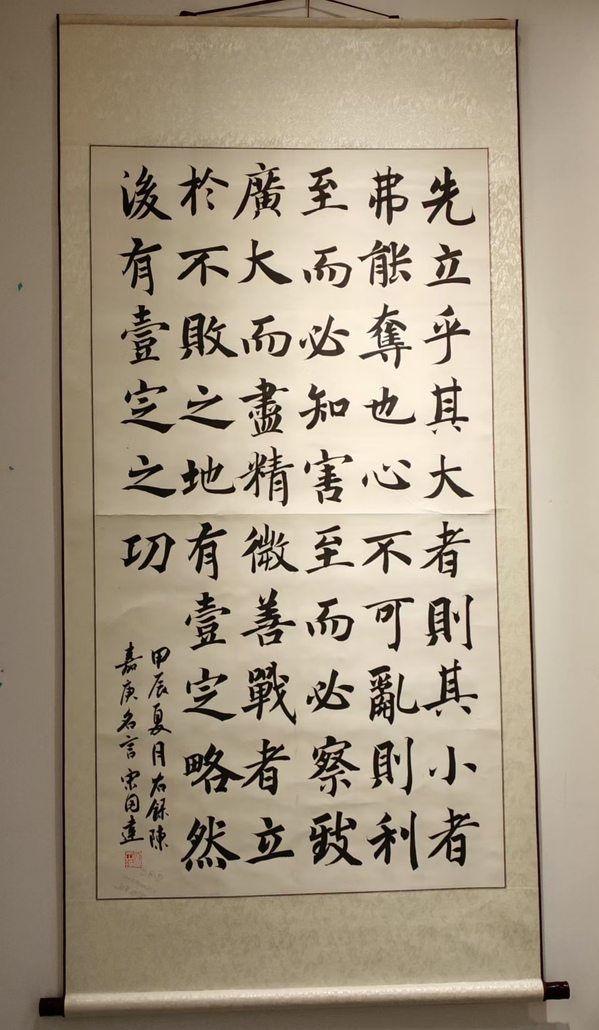 先立乎其大者則其小者
弗能奪也心不可亂則利
至而必知害至而必察致
廣大而盡精微善戰者立
於不敗之地有壹定略然
後有壹定之功
甲辰夏月右錄陳
嘉庚名言宋國達